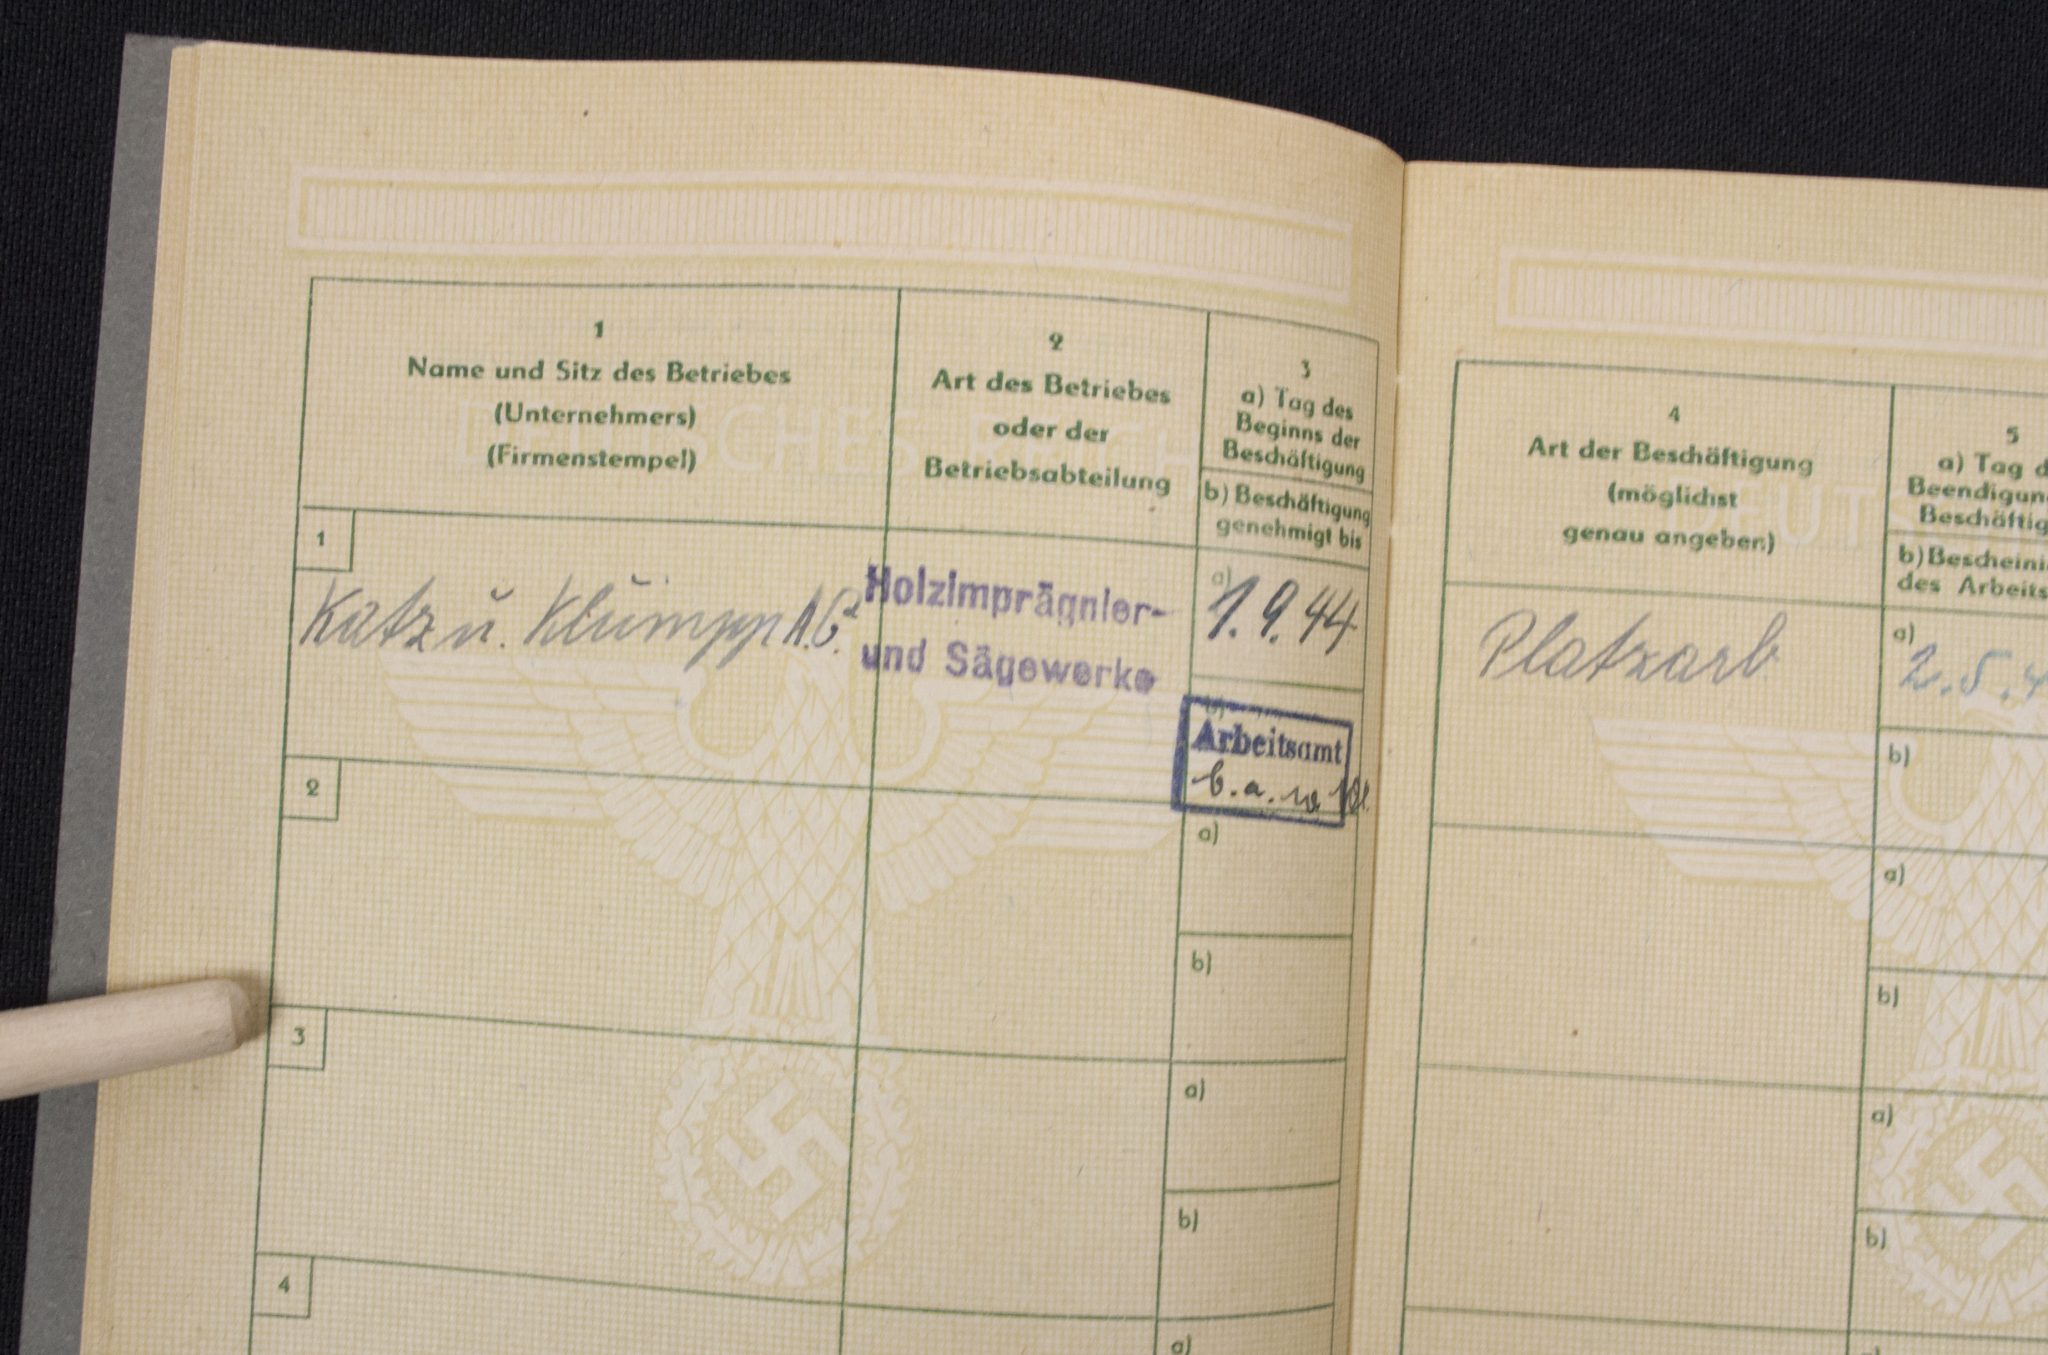 1
Name und Sitz des Betriebes
(Unternehmers)
(Firmenstempel)
2
Art des Betriebes
oder der
Betriebsabteilung
3
a) Tag des
Beginns der
Beschäftigung
b) Beschäftigung
genehmigt bis
1
Katz u. Klumpp A.G.
Holzimprägnier-
und Sägewerke
a)
1.9.44
b)
Arbeitsamt
b. a. w.
2
a)
b)
3
a)
b)
4
a)
4
Art der Beschäftigung
(möglichst
genau angeben)
5
a) Tag d
Beendigun
Beschäftig
b) Bescheini
des Arbeits
Platzarb.
a)
2.5.4
b)
a)
b)
a)
b)
DEUTSCHES REICH
DEUTS